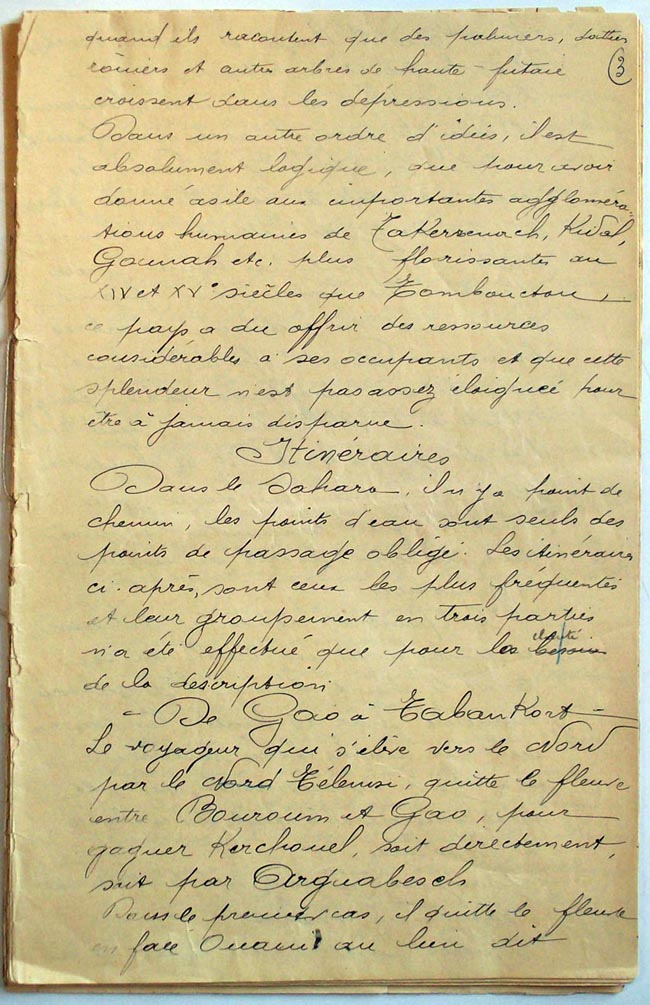 quand ils racontent que des palmiers, dattiers
rôniers et autres arbres de haute-futaie
3
croissent dans les dépressions.
Dans un autre ordre d'idées, il est
absolument logique, que pour avoir
donné asile aux importantes aggloméra-
tions humaines de Takerzenach, Kidal,
Gounah etc. plus florissantes au
XIV et XV° siècles que Tombouctou,
ce pays a du offrir des ressources
considérables à ses occupants et que cette
splendeur n'est pas assez éloignée pour
être à jamais disparue.
Itinéraires
Dans le Sahara, il n'y a point de
chemin, les points d'eau sont seuls des
points de passage obligé. Les itinéraires
ci-après, sont ceux les plus fréquentés
et leur groupement en trois parties
n'a été effectué que pour la clarté
de la description
- De Gao à Tabankort -
Le voyageur qui s'élève vers le Nord
par le Nord Télemsi, quitte le fleuve
entre Bouroum et Gao, pour
gagner Kerchouel, soit directement,
soit par Arguabesch
Dans le premier cas, il quitte le fleuve
en face Ouami au lieu dit